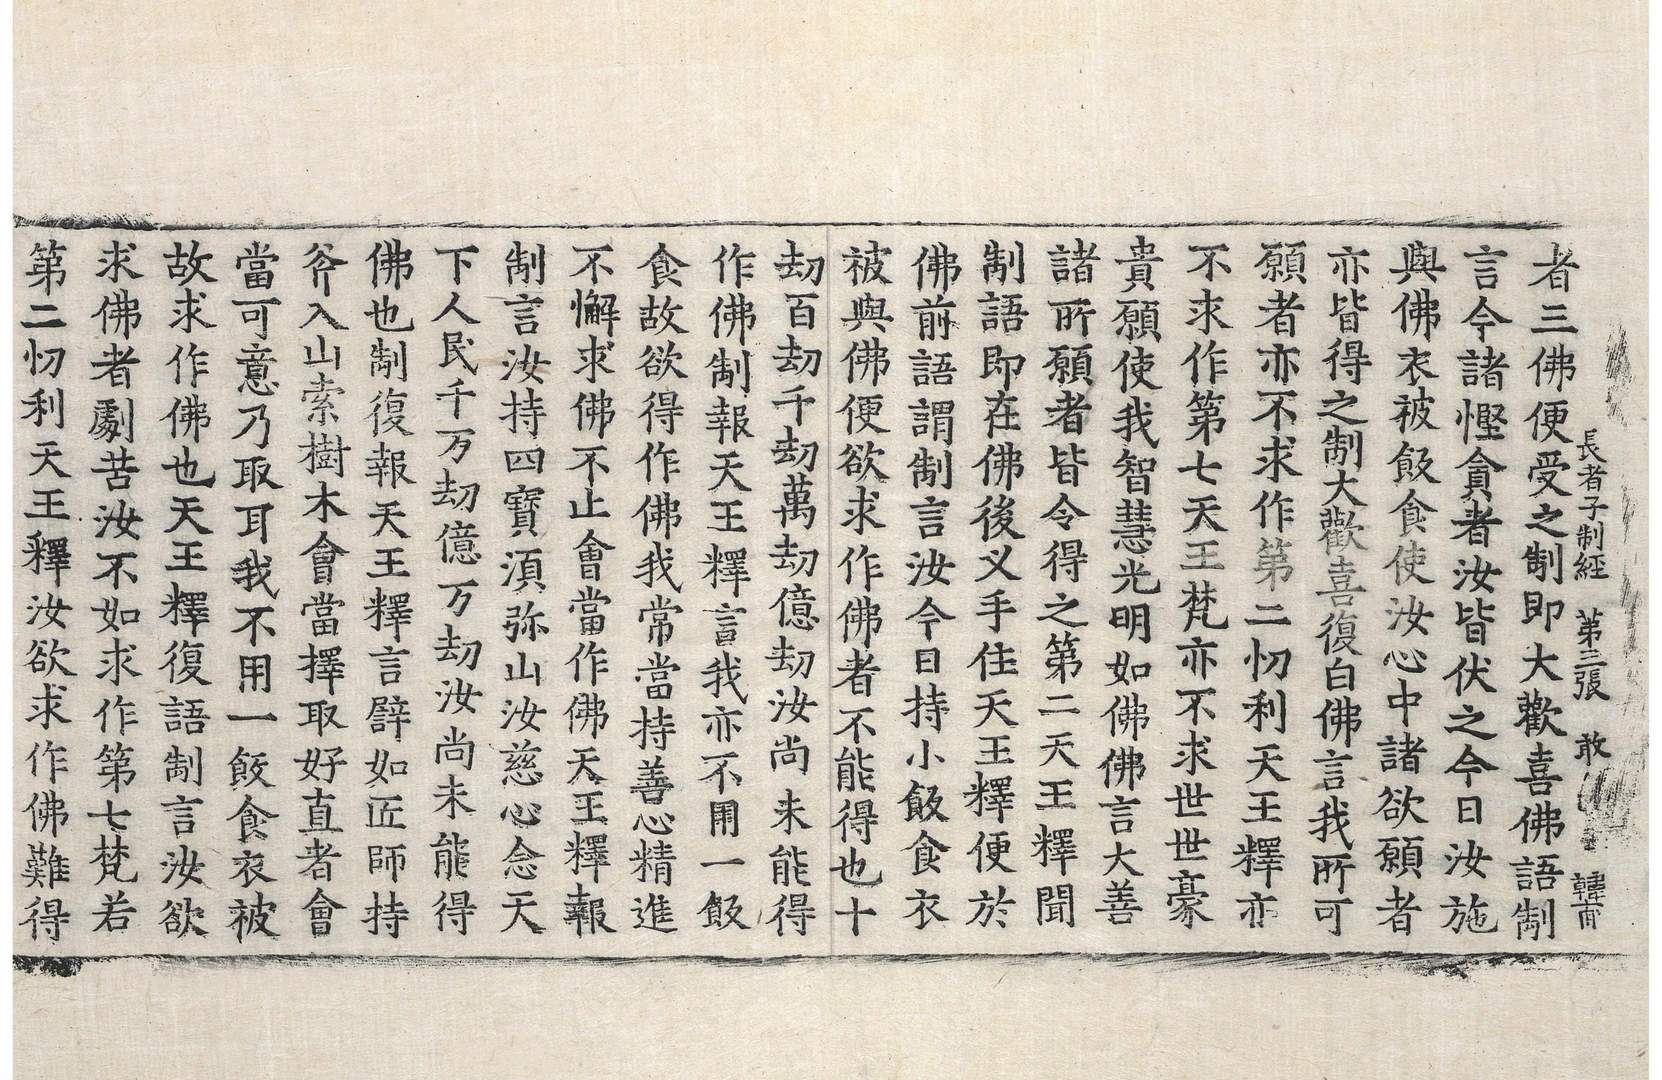 長者子制經 第三張 敢 韓甫
者三佛便受之制即大歡喜佛語制
言今諸慳貪者汝皆伏之今日汝施
與佛衣被飯食使汝心中諸欲願者
亦皆得之制大歡喜復白佛言我所可
願者亦不求作第二忉利天王釋亦
不求作第七天王梵亦不求世世豪
貴願使我智慧光明如佛佛言大善
諸所願者皆令得之第二天王釋聞
制語即在佛後叉手住天王釋便於
佛前語謂制言汝今日持小飯食衣
被與佛便欲求作佛者不能得也十
劫百劫千劫萬劫億劫汝尚未能得
作佛制報天王釋言我亦不用一飯
食故欲得作佛我常當持善心精進
不懈求佛不止會當作佛天王釋報
制言汝持四寶湏弥山汝慈心念天
下人民千万劫億万劫汝尚未能得
佛也制復報天王釋言譬如匠師持
斧入山索樹木會當擇取好直者會
當可意乃取耳我不用一飯食衣被
故求作佛也天王釋復語制言汝欲
求佛者劇苦汝不如求作第七梵若
第二忉利天王釋汝欲求作佛難得